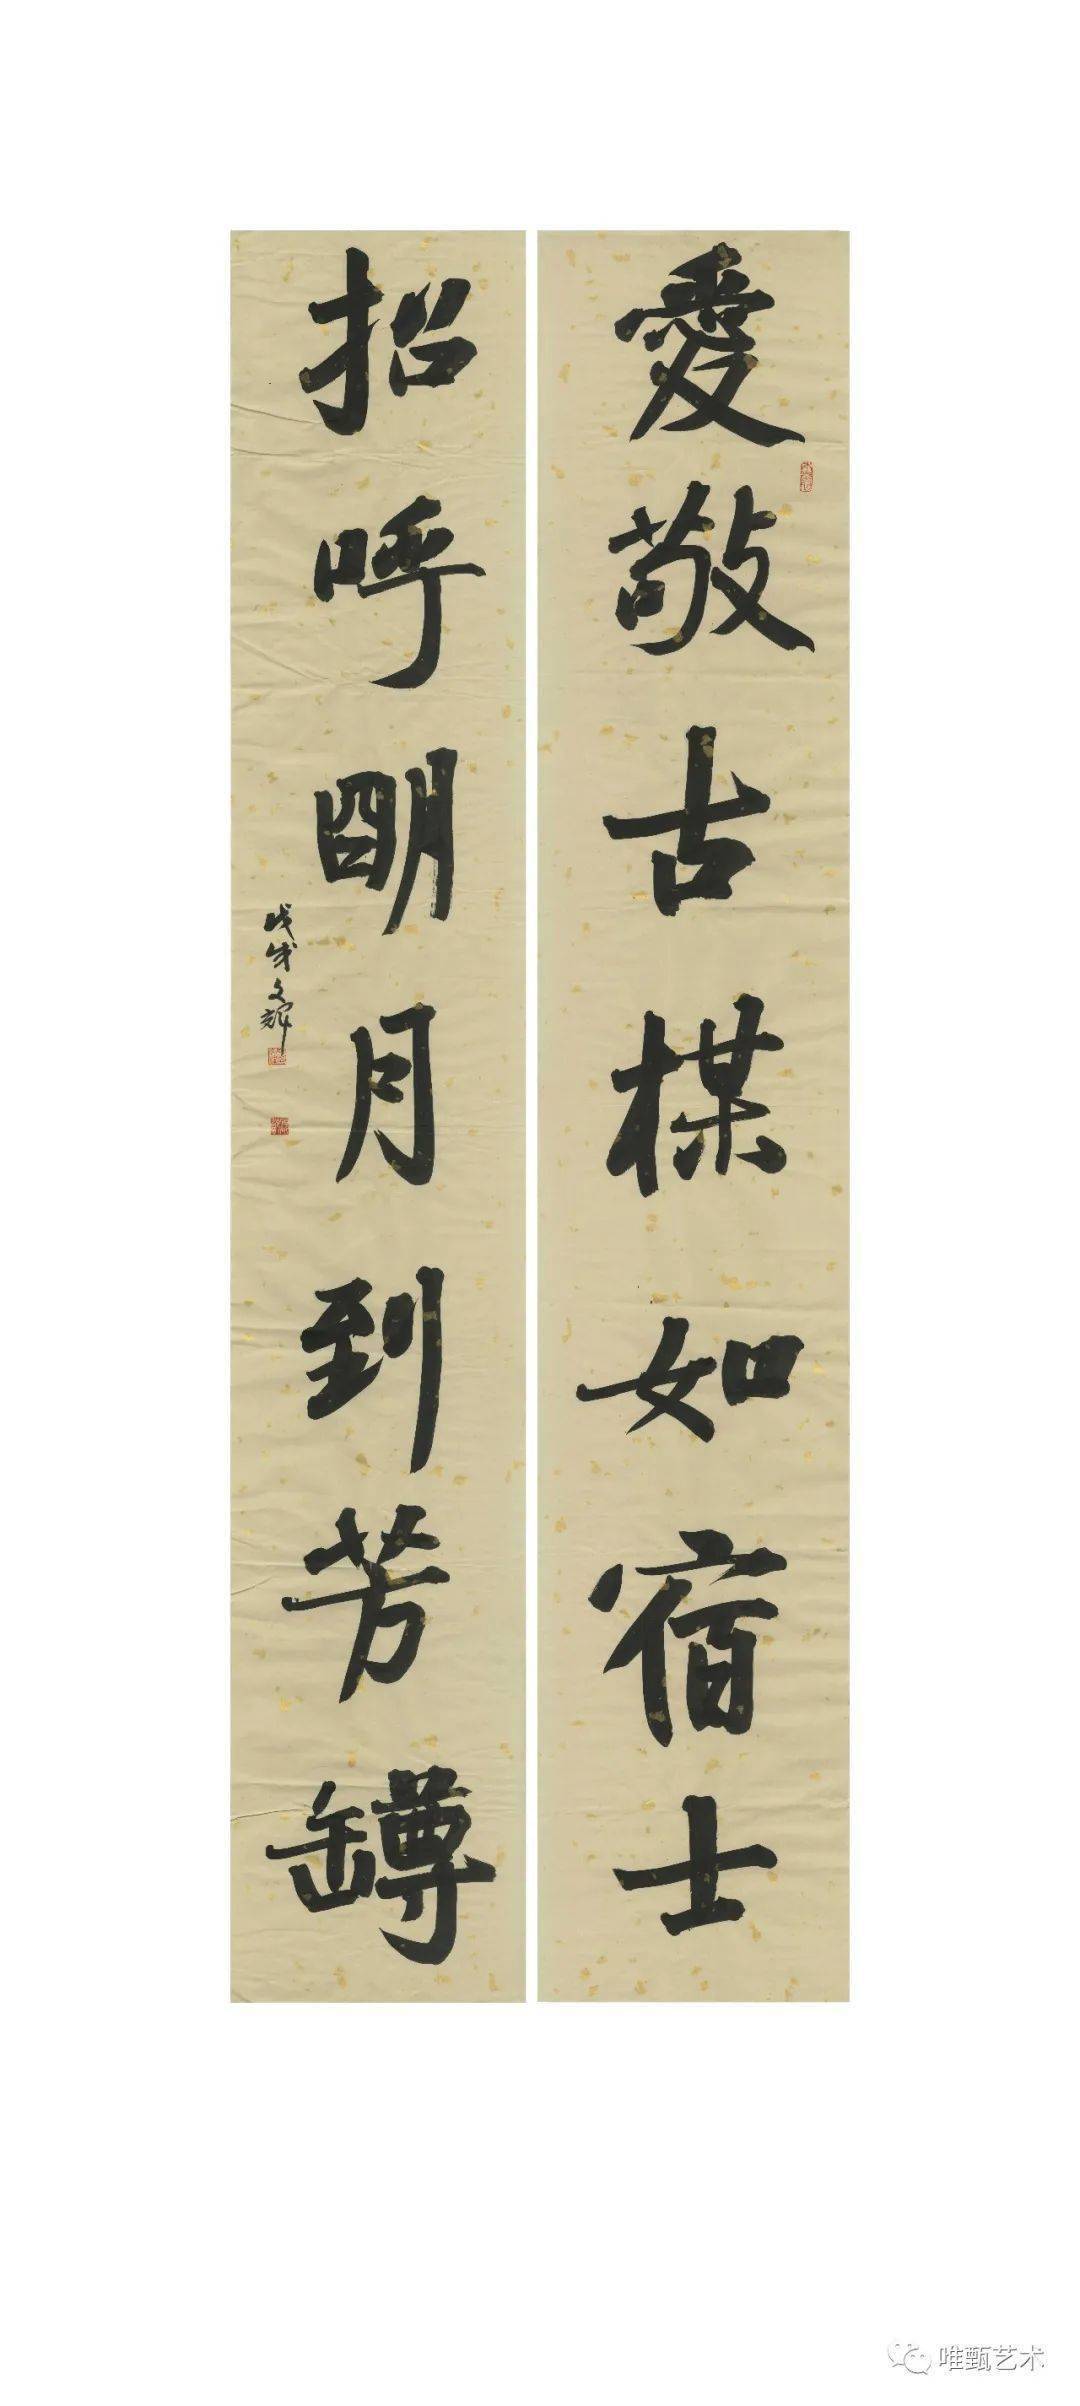 愛敬古楳如宿士
招呼明月到芳罇
戊戌文輝
唯甄艺术